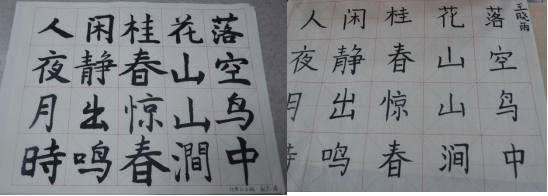 人闲桂花落
夜静春山空
月出惊山鸟
時鸣春澗中
王晓雨
人闲桂花落
夜静春山空
月出惊山鸟
鸣春涧中